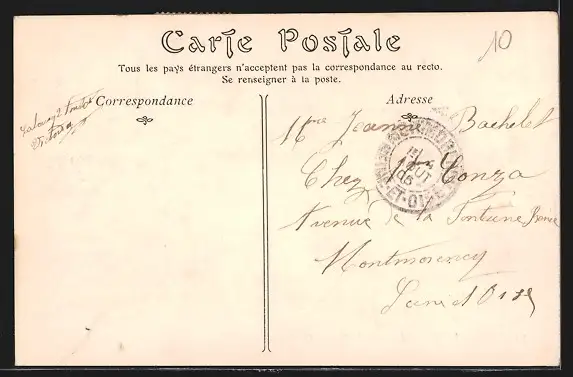 Carte Postale
10
Tous les pays étrangers n'acceptent pas la correspondance au recto.
Se renseigner à la poste.
Correspondance
Adresse
Jeanne Bachelet
Chez Conza
Avenue de la Fontaine
Montmorency
Seine et Oise